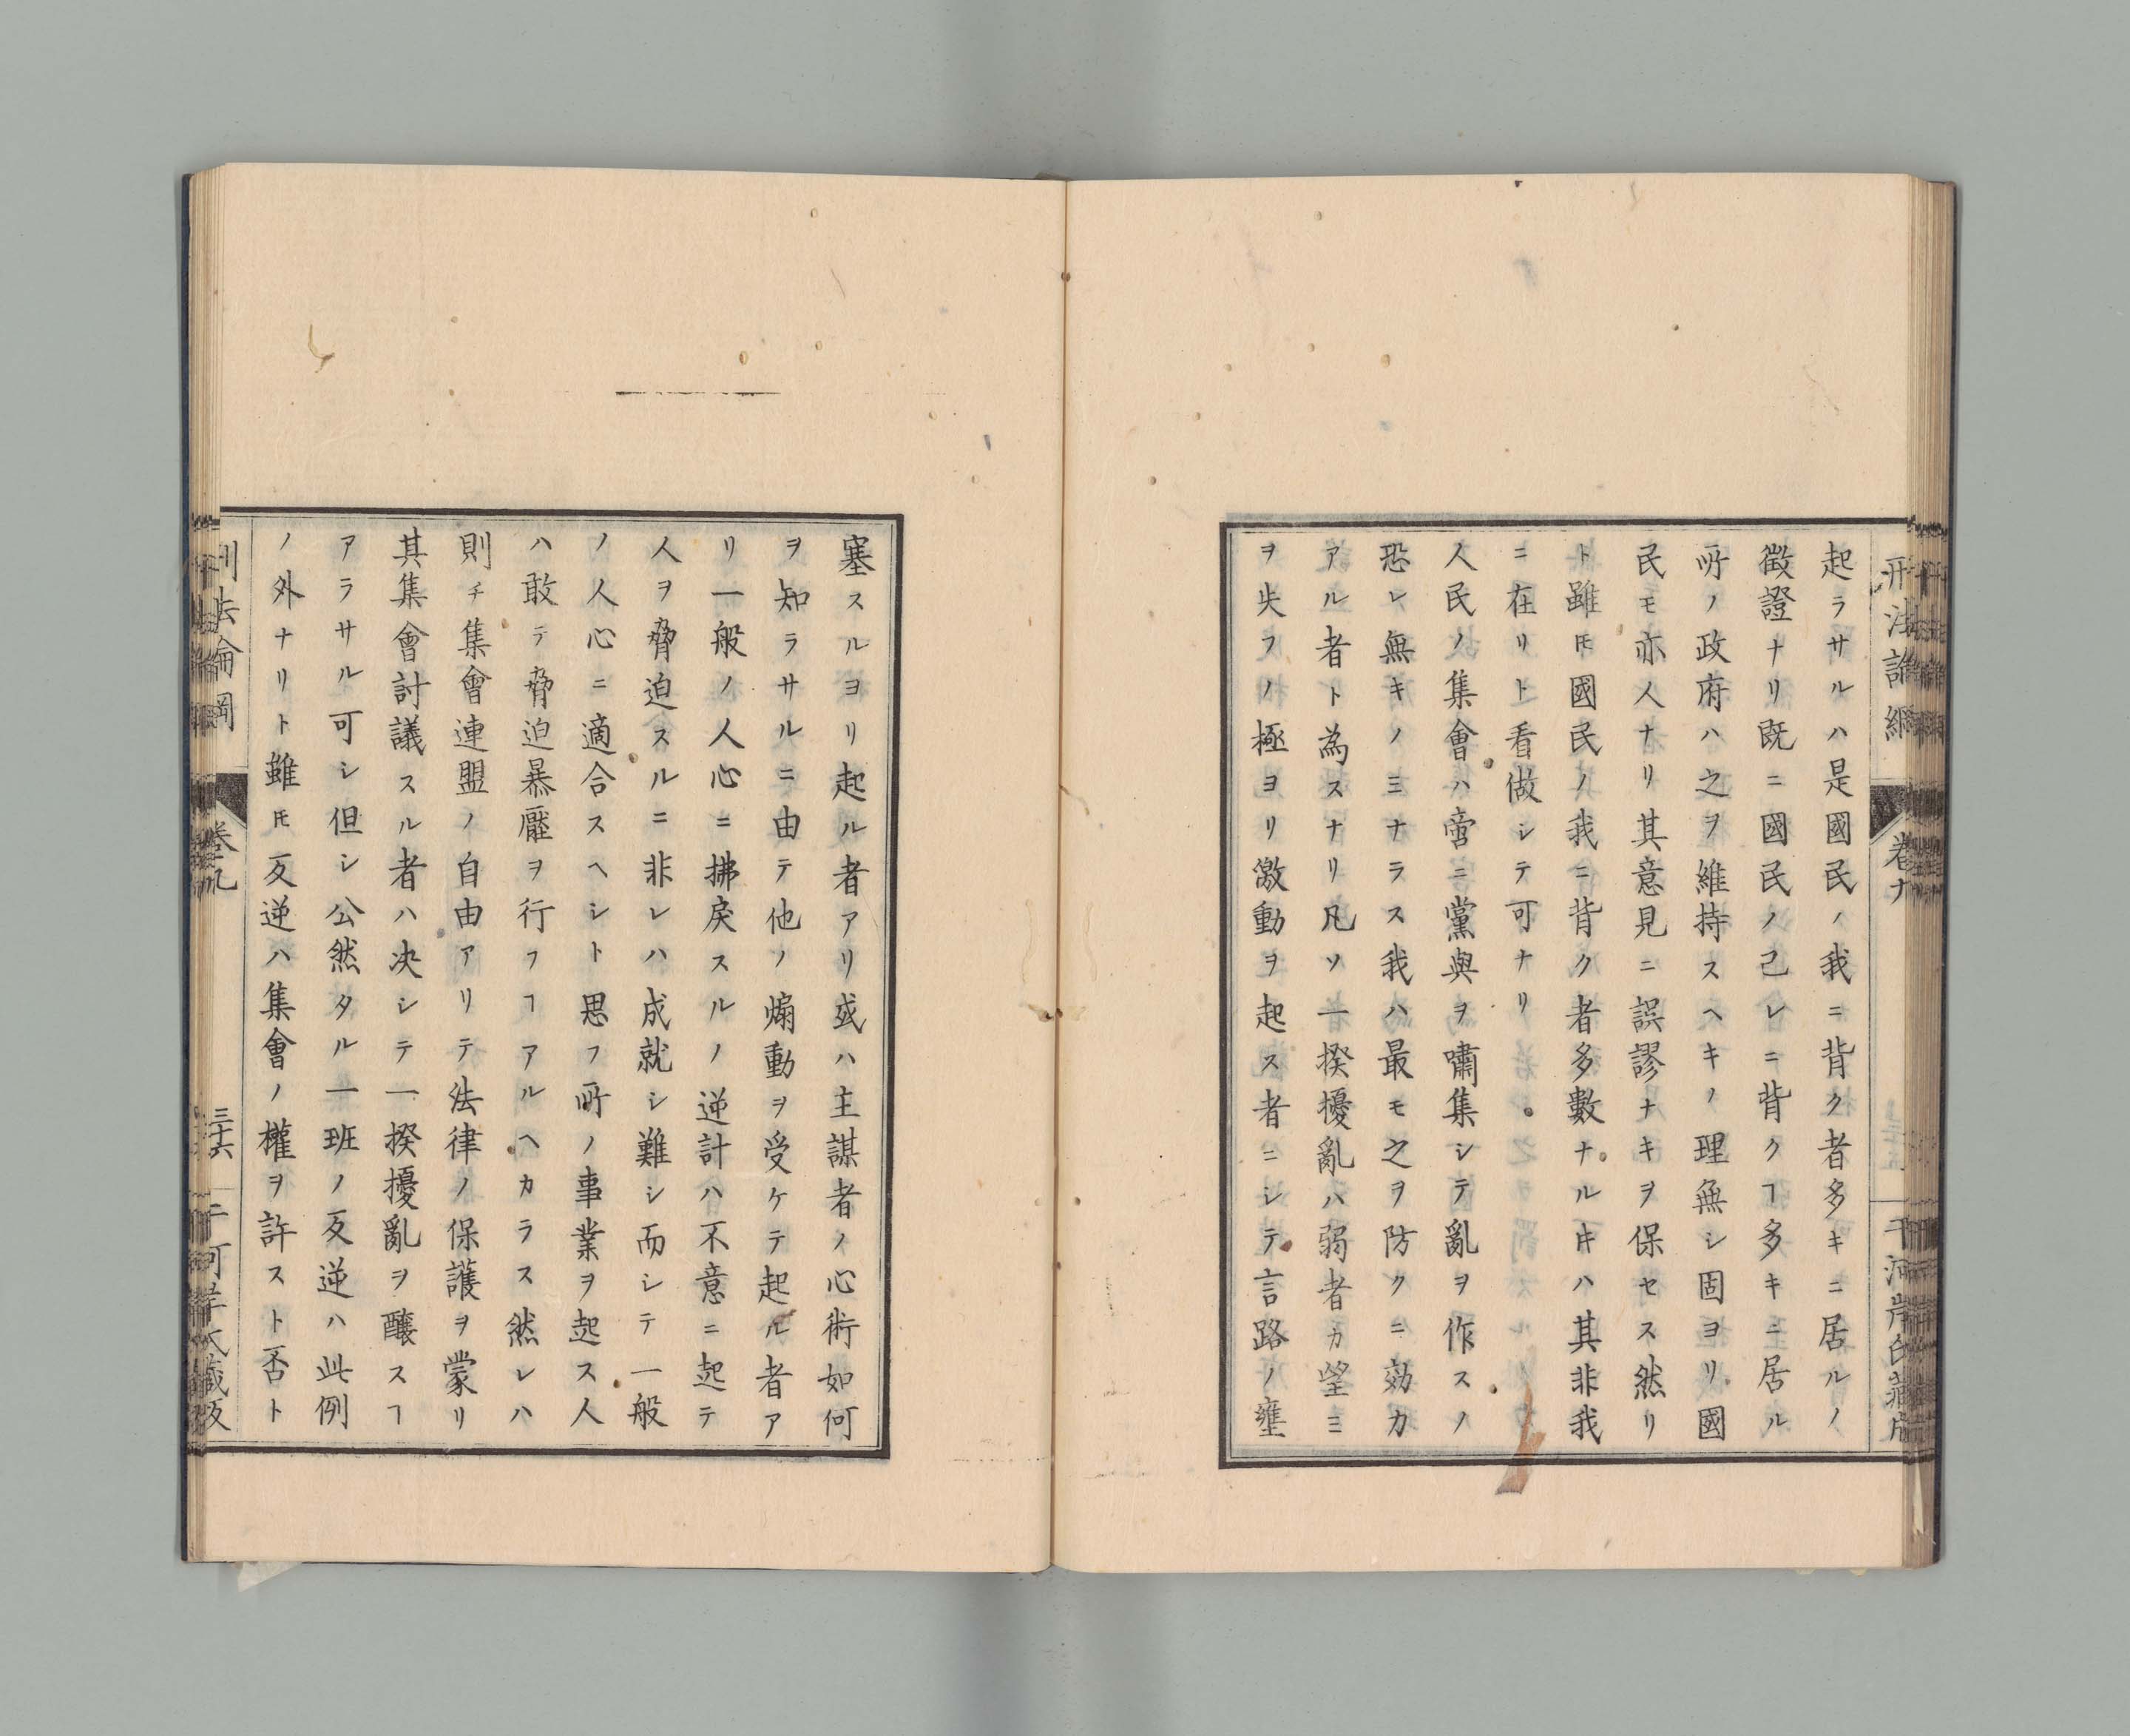 起ラサルハ是國民ノ我ニ背ク者多キニ居ルノ
徴證ナリ既ニ國民ノ己レニ背クヿ多キニ居ル
所ノ政府ハ之ヲ維持スヘキノ理無シ固ヨリ國
民モ亦人ナリ其意見ニ誤謬ナキヲ保セス然リ
ト雖𪜈國民ノ我ニ背ク者多數ナルキハ其非我
ニ在リト看做シテ可ナリ。
人民ノ集會ハ啻ニ黨與ヲ嘯集シテ亂ヲ作スノ
恐レ無キノミナラス我ハ最モ之ヲ防クニ効力
アル者ト為スナリ凡ソ一揆擾亂ハ弱者カ望ミ
ヲ失フノ極ヨリ激動ヲ起ス者ニシテ言路ノ壅
塞スルヨリ起ル者アリ或ハ主謀者ノ心術如何
ヲ知ラサルニ由テ他ノ煽動ヲ受ケテ起ル者ア
リ一般ノ人心ニ拂戾スルノ逆計ハ不意ニ起テ
人ヲ脅迫スルニ非レハ成就シ難シ而シテ一般
ノ人心ニ適合スヘシト思フ所ノ事業ヲ起ス人
ハ敢テ脅迫暴壓ヲ行フヿアルヘカラス然レハ
則チ集會連盟ノ自由アリテ法律ノ保護ヲ蒙リ
其集會討議スル者ハ决シテ一揆擾亂ヲ醸スヿ
アラサル可シ但シ公然タル一班ノ反逆ハ此例
ノ外ナリト雖𪜈反逆ハ集會ノ權ヲ許スト否ト
卷九
三十六